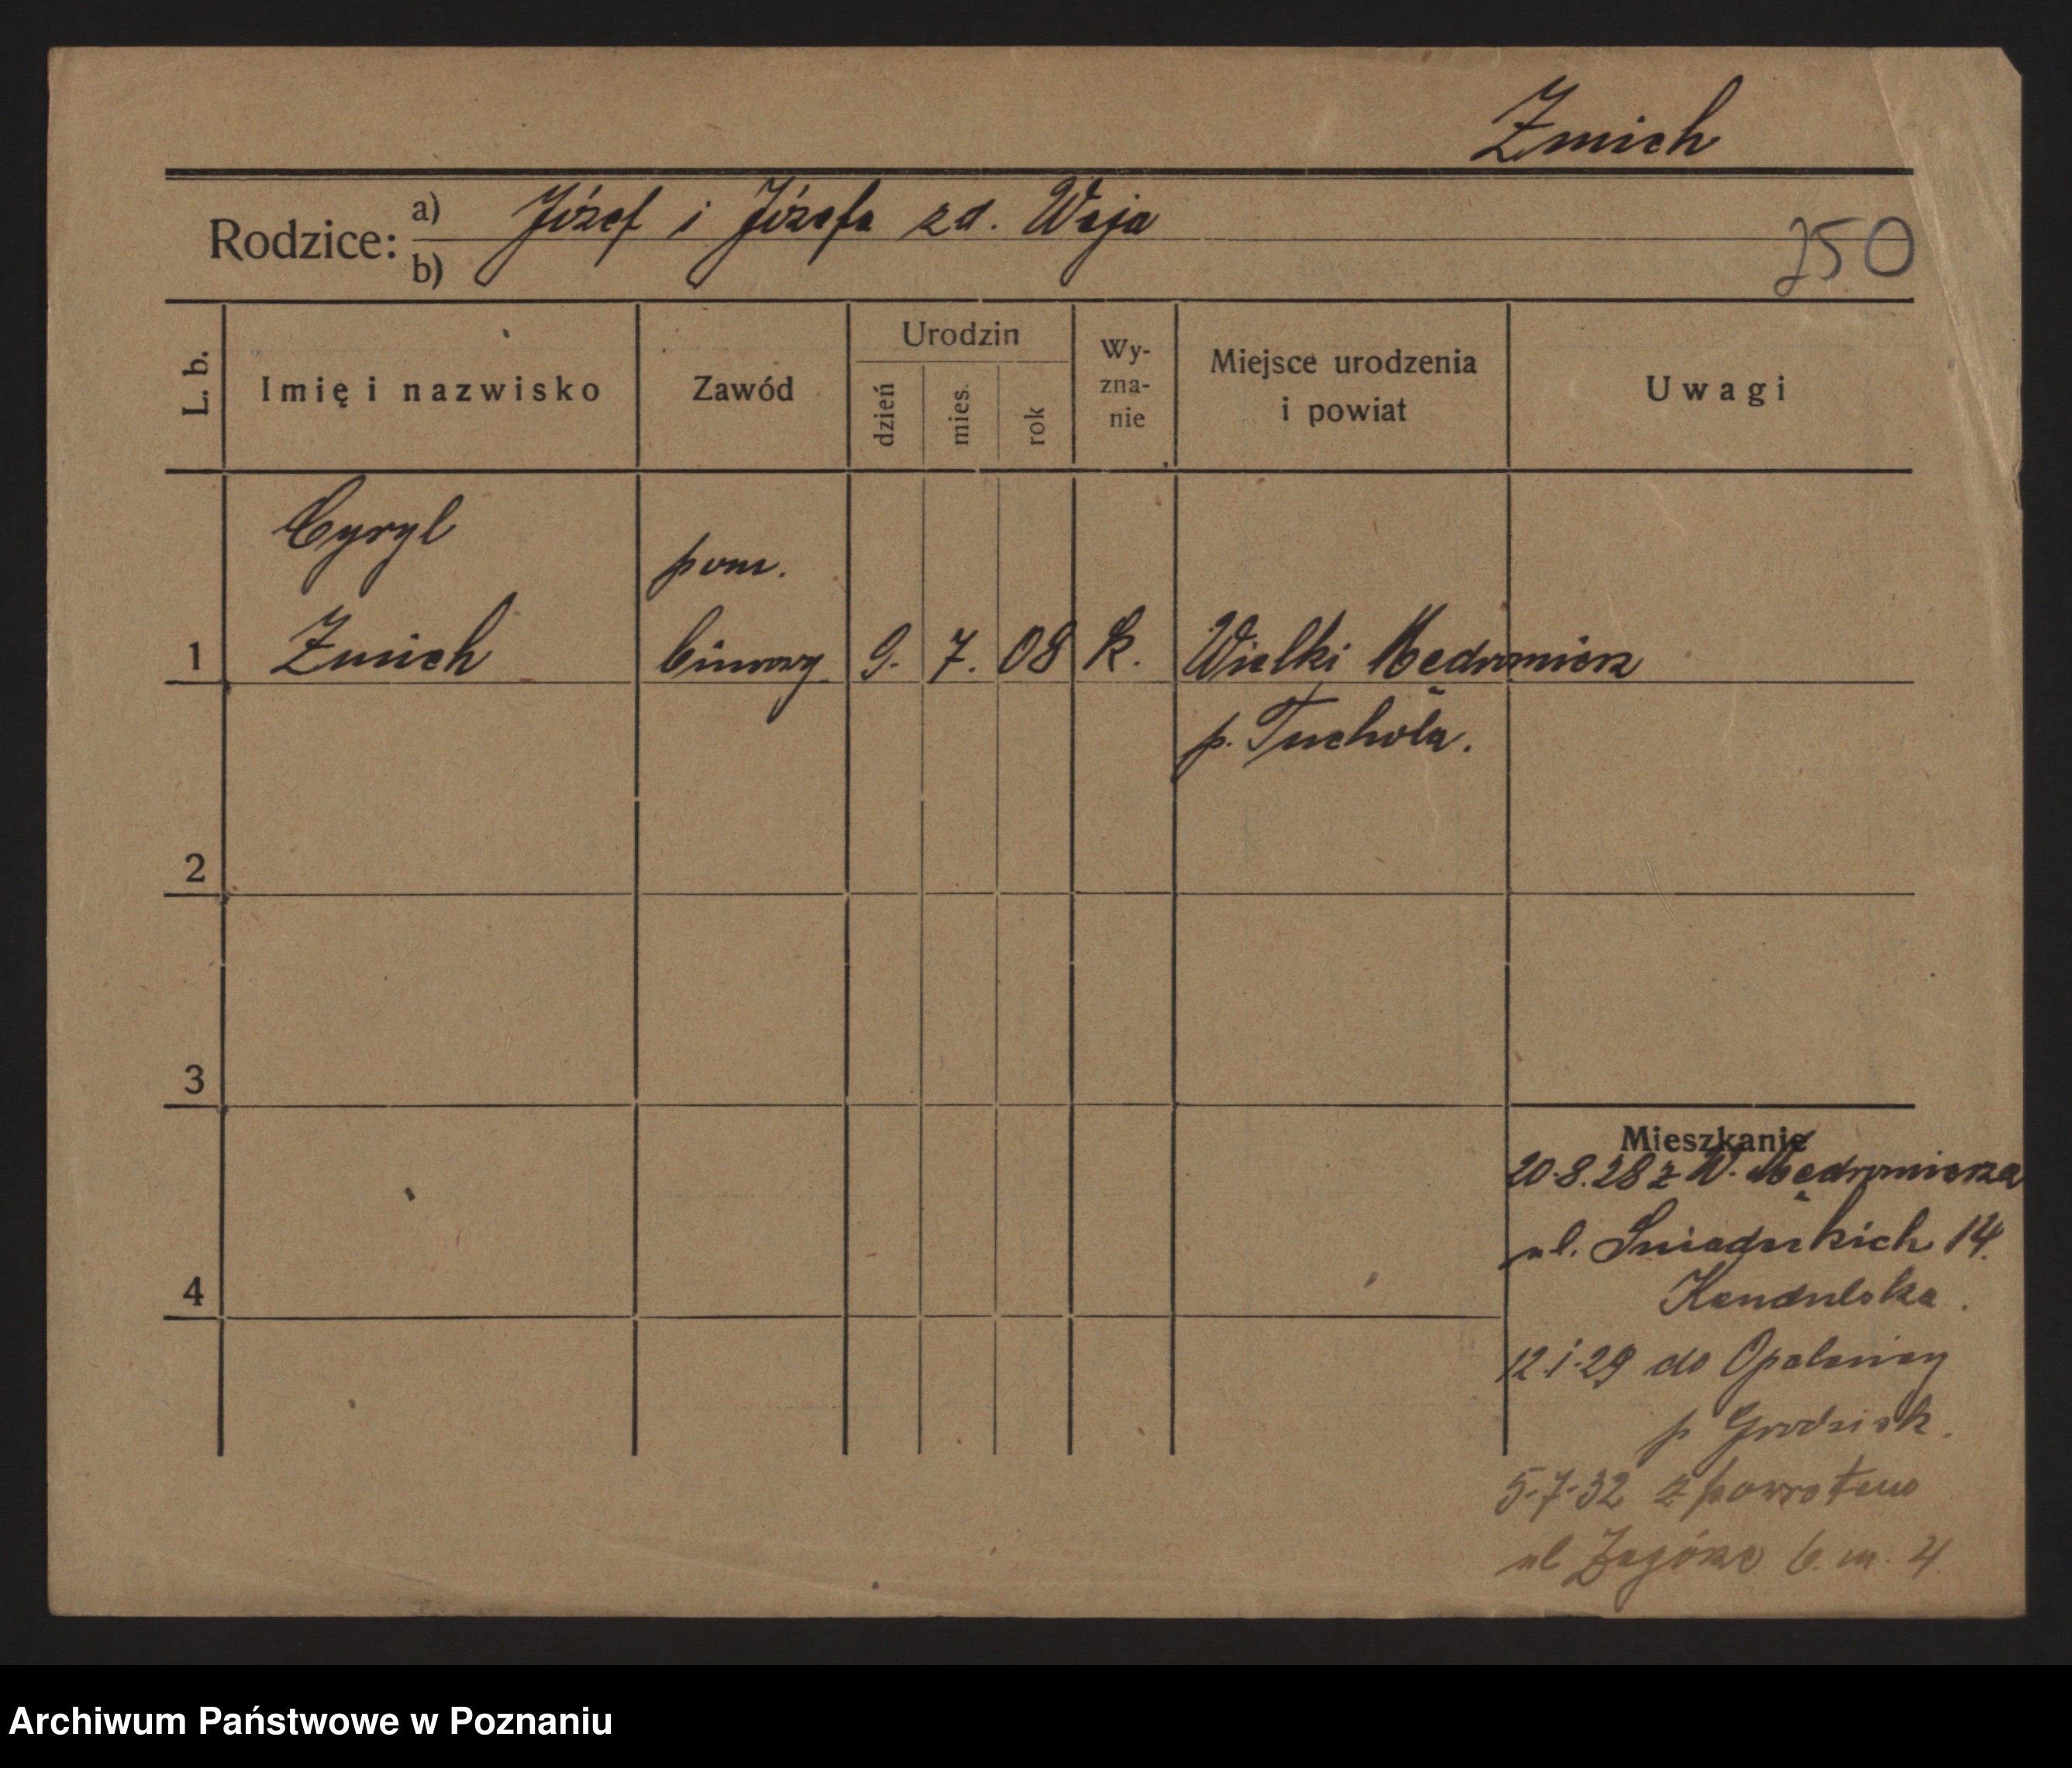 Zmich
Rodzice:
a) Józef i Józefa zd. Weja
b)
250
L. b.
Imię i nazwisko
Zawód
Urodzin
dzień
mies.
rok
Wy-
zna-
nie
Miejsce urodzenia
i powiat
Uwagi
Cyryl
pom.
1 Zmich biurowy. 9. 7. 08 k. Wielki Mędromierz
p. Tuchola.
2
3
Mieszkanie
20.8.28 z W. Mędromierza
ul. Sniadeckich 14.
4
12.1.29 do Opalenicy
p Grodzisk.
5.7.32 z powrotem
ul Zagórze 6. m. 4.
Archiwum Państwowe w Poznaniu